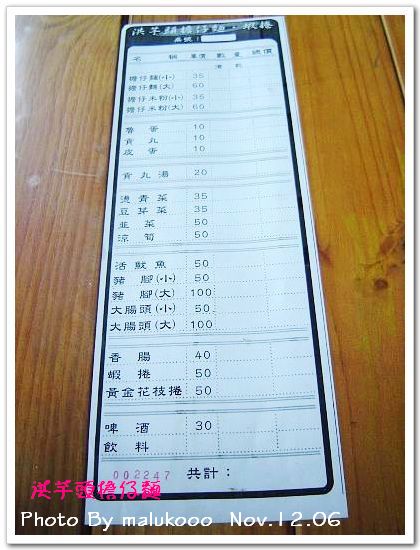 洪芋頭擔仔麵·蝦捲
桌號：
名 稱 單價 數量 總價
湯 乾
擔仔麵(小) 35
擔仔麵(大) 60
擔仔米粉(小) 35
擔仔米粉(大) 60
魯蛋 10
貢丸 10
皮蛋 10
貢丸湯 20
燙青菜 35
豆芽菜 35
韭菜 50
涼筍 50
活魷魚 50
豬腳(小) 50
豬腳(大) 100
大腸頭(小) 50
大腸頭(大) 100
香腸 40
蝦捲 50
黃金花枝捲 50
啤酒 30
飲料
002247 共計：
洪芋頭擔仔麵
Photo By malukooo Nov.12.06